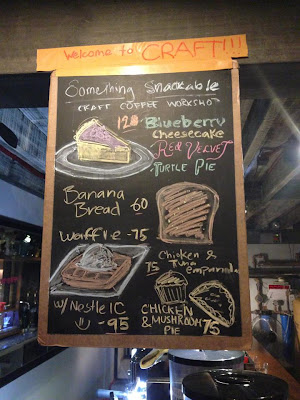 Welcome to CRAFT!!!
Something Snackable
CRAFT COFFEE WORKSHOP
120
Blueberry
Cheesecake
RED VELVET
TURTLE PIE
Banana
Bread 60
Waffle - 75
Chicken &
Tuna
empanada
75
w/ Nestle IC
- 95
CHICKEN
& MUSHROOM
PIE 75